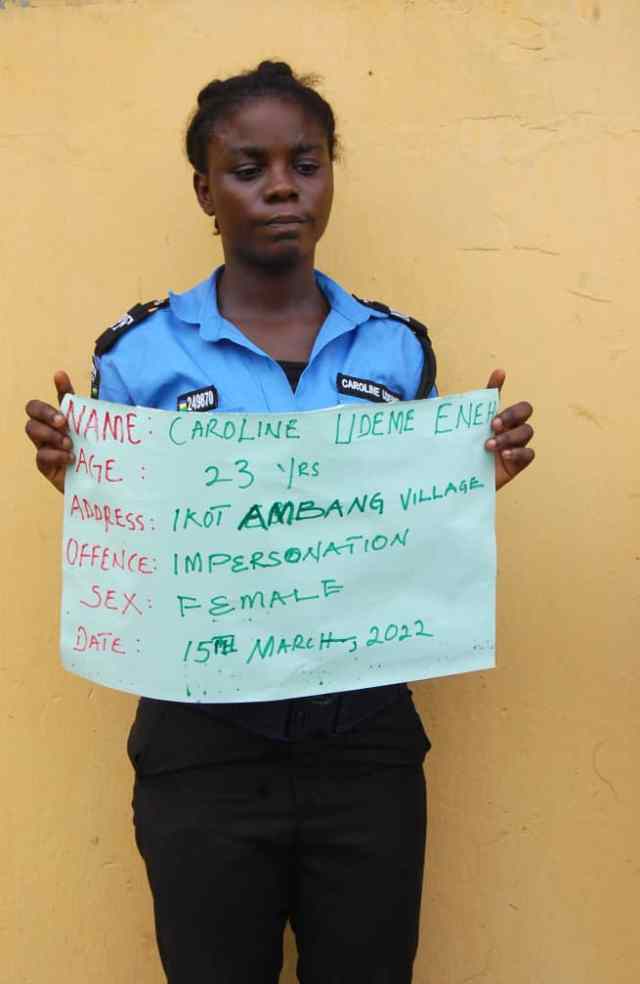 249870
CAROLINE
NAME: CAROLINE UDEME ENEH
AGE : 23 YRS
ADDRESS: IKOT AMBANG VILLAGE
OFFENCE: IMPERSONATION
SEX: FEMALE
DATE: 15TH MARCH, 2022